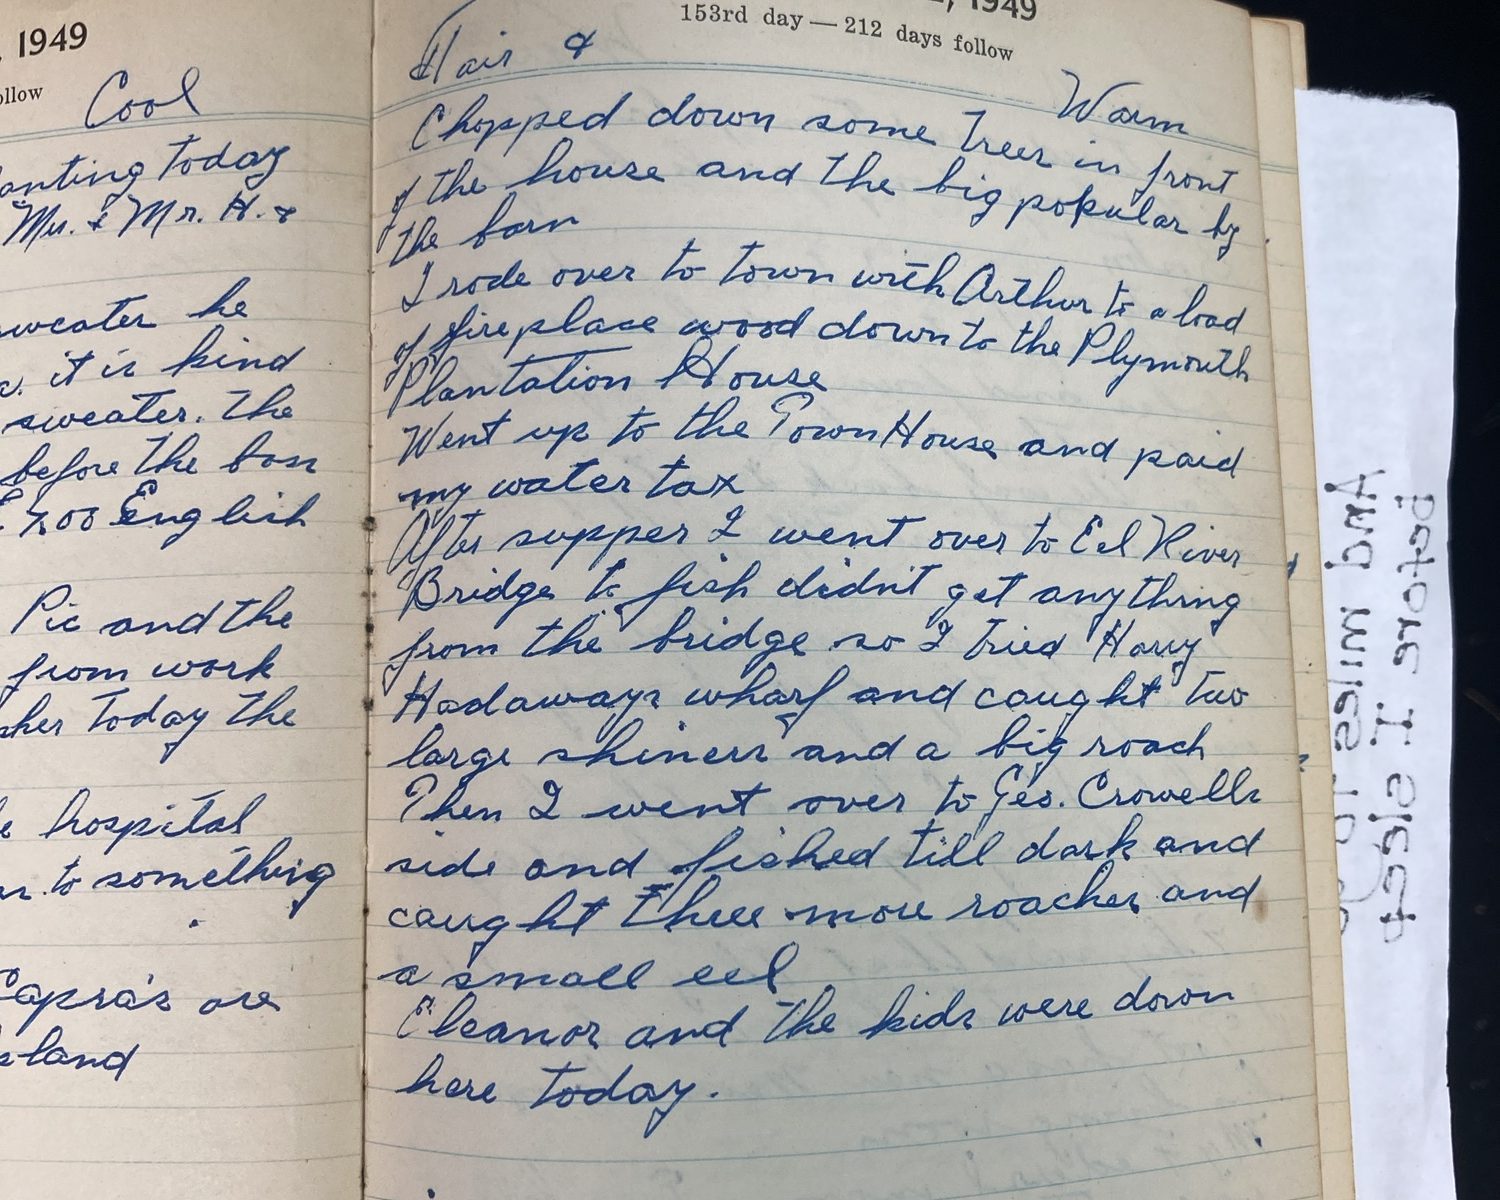 , 1949
ollow
Cool
anting today
Mrs. & Mr. H. &
sweater he
it is kind
sweater. The
before the bon
7.00 English
Pic and the
from work
sher today the
hospital
to something
Capra's are
sland
, 1949
153rd day — 212 days follow
Fair & Warm
Chopped down some trees in front
of the house and the big popular by
the barn
I rode over to town with Arthur to a load
of fireplace wood down to the Plymouth
Plantation House
Went up to the Town House and paid
my water tax
After supper I went over to Eel River
Bridge to fish didn't get anything
from the bridge so I tried Harry
Hadaways wharf and caught two
large shiners and a big roach
Then I went over to Geo. Crowells
side and fished till dark and
caught three more roaches and
a small eel
Eleanor and the kids were down
here today.
And miles to go
before I sleep